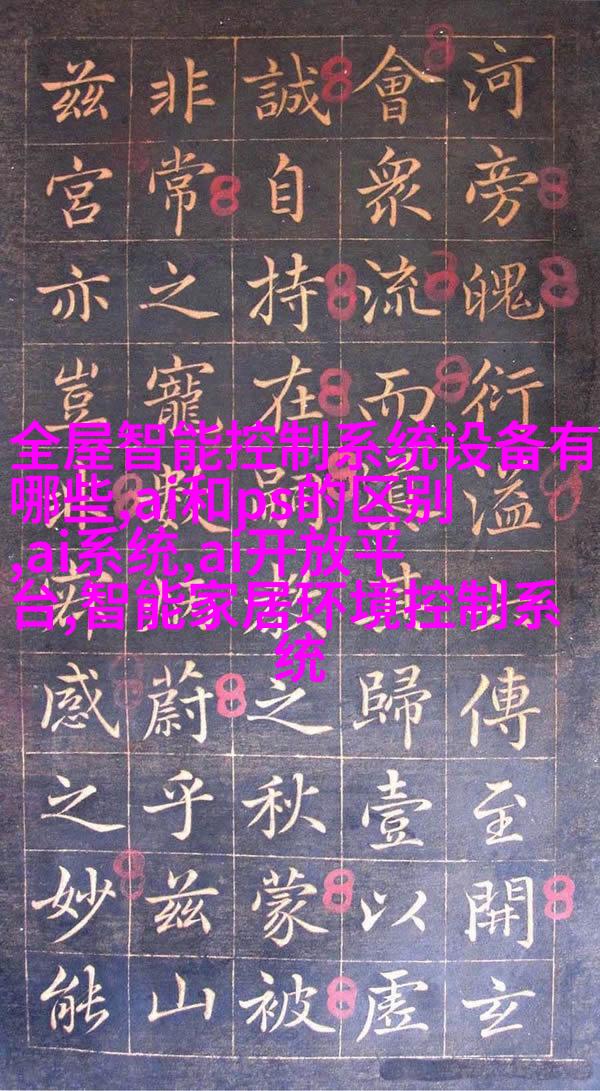 河旁魄衍溢傳至開玄
會衆流而歸壹以虛
誠自持在之秋蒙被
非常之寵蔚乎兹山
兹宮亦豈感之妙能
全屋智能控制系统设备有
哪些,ai和ps的区别
,ai系统,ai开放平
台,智能家居环境控制系
统